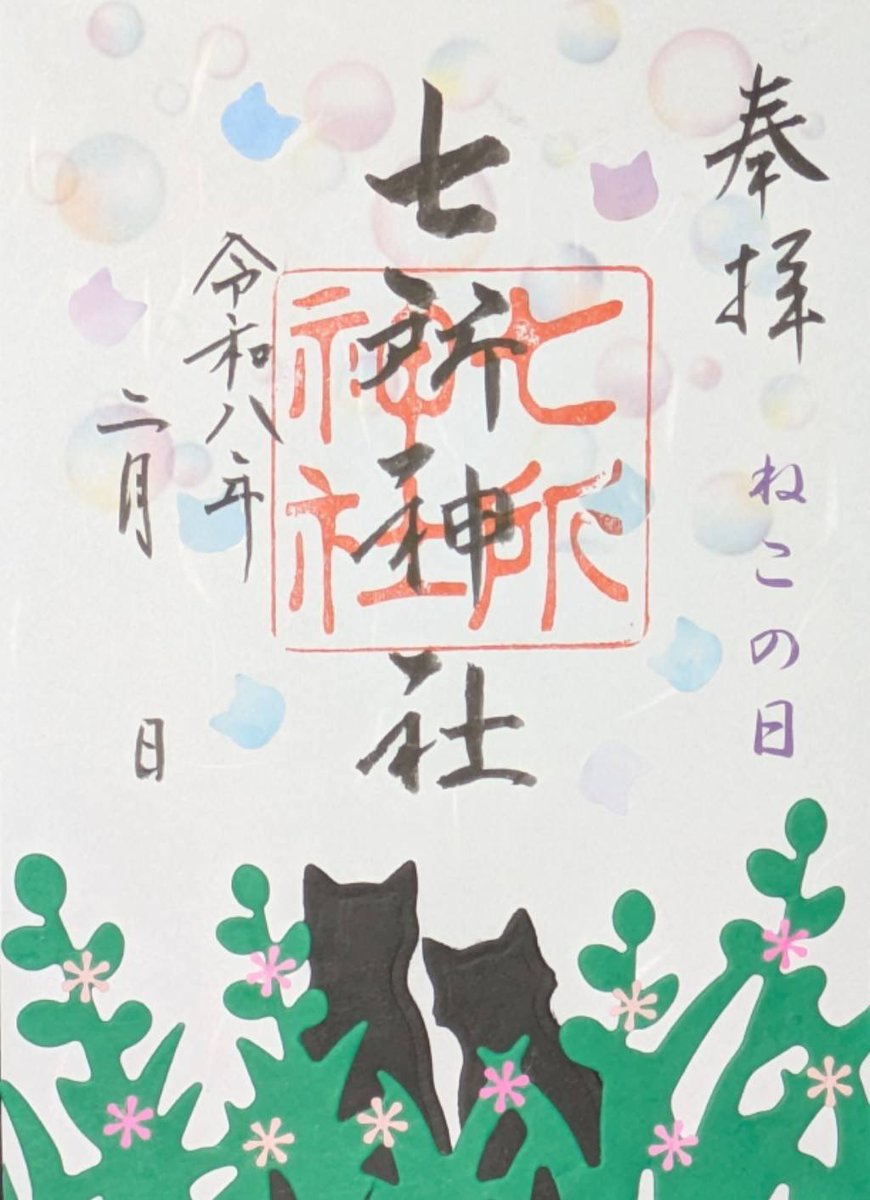 奉拝
ねこの日
七所神社
七所
神社
令和八年
二月 日